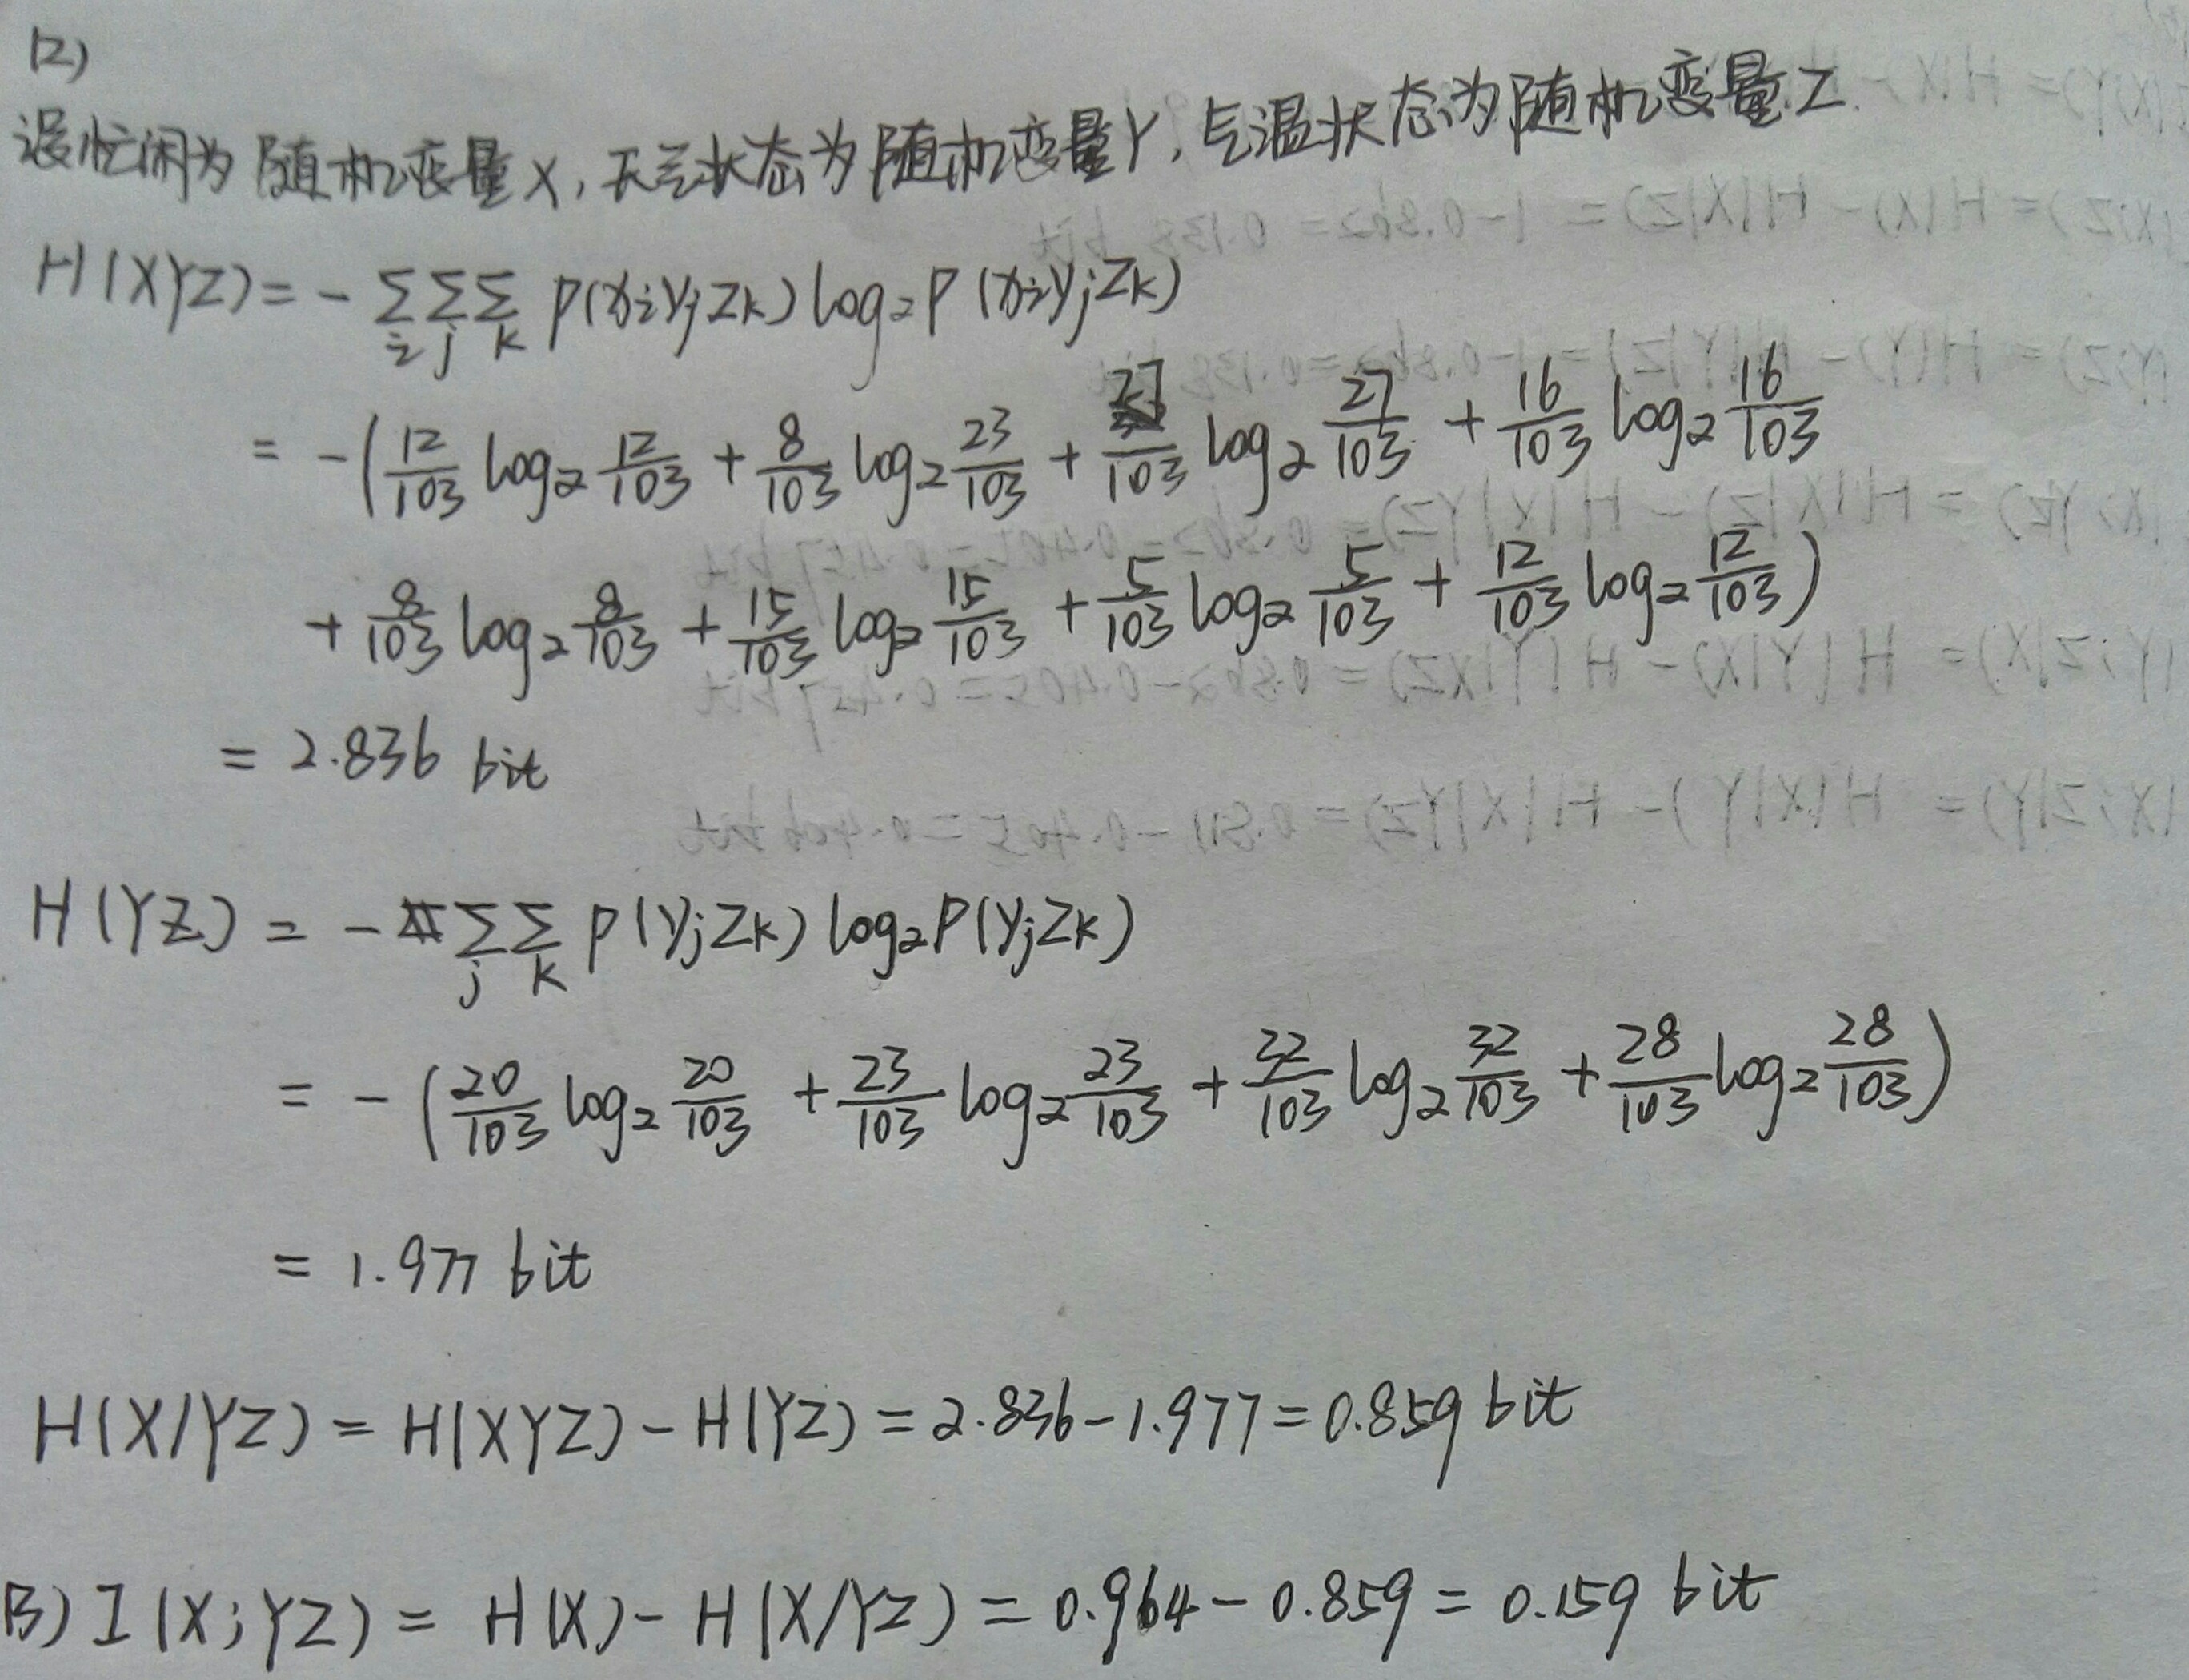 (2)
设忙闲为随机变量X,天气状态为随机变量Y,气温状态为随机变量Z.
H(XYZ)=-∑i∑j∑k P(xiyjzk)log₂P(xiyjzk)
=-(12/103 log₂ 12/103 + 8/103 log₂ 23/103 + 27/103 log₂ 27/103 + 16/103 log₂ 16/103
+ 8/103 log₂ 8/103 + 15/103 log₂ 15/103 + 5/103 log₂ 5/103 + 12/103 log₂ 12/103)
= 2.836 bit
H(YZ) = -∑j∑k P(yjzk)log₂P(yjzk)
= -(20/103 log₂ 20/103 + 23/103 log₂ 23/103 + 32/103 log₂ 32/103 + 28/103 log₂ 28/103)
= 1.977 bit
H(X/YZ) = H(XYZ)-H(YZ) = 2.836-1.977=0.859 bit
(3) I(X;YZ) = H(X)-H(X/YZ) = 0.964-0.859 = 0.159 bit